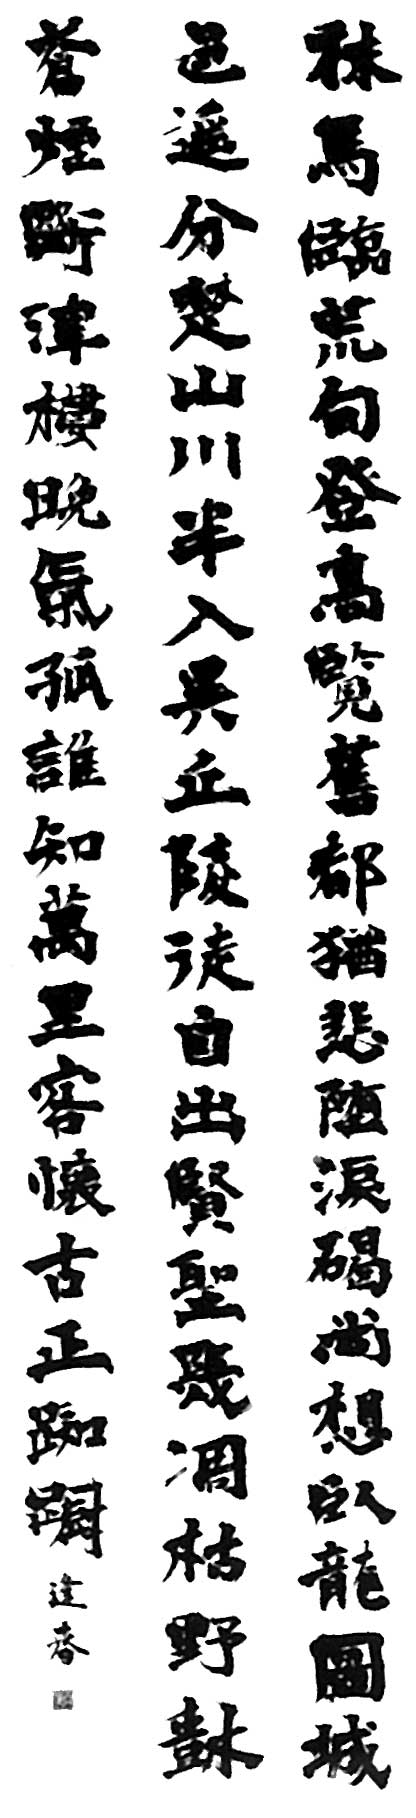 秣馬臨荒甸登高覽舊都猶悲堕淚碣尚想臥龍圖城
邑遙分楚山川半入吳丘陵徒自出賢聖幾凋枯野樹
蒼煙斷津樓晚氣孤誰知萬里客懷古正踟躕
逢春